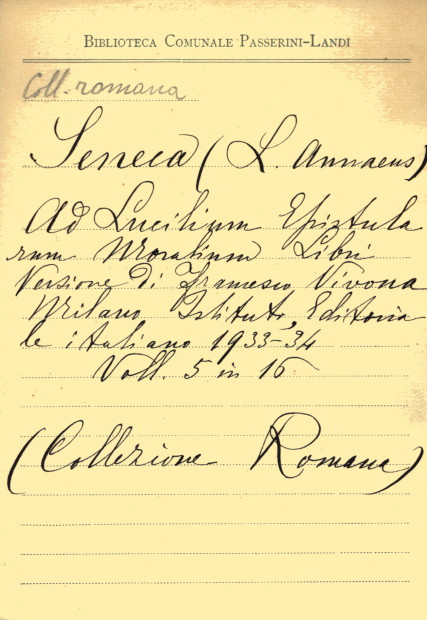 BIBLIOTECA COMUNALE PASSERINI-LANDI
Coll. romana
Seneca (L. Annaeus)
Ad Lucilium Epistula
rum Moralium Libri
Versione di Francesco Vivona
Milano, Istituto Editoria
le italiano 1933-34
Voll. 5 in 16
(Collezione Romana)